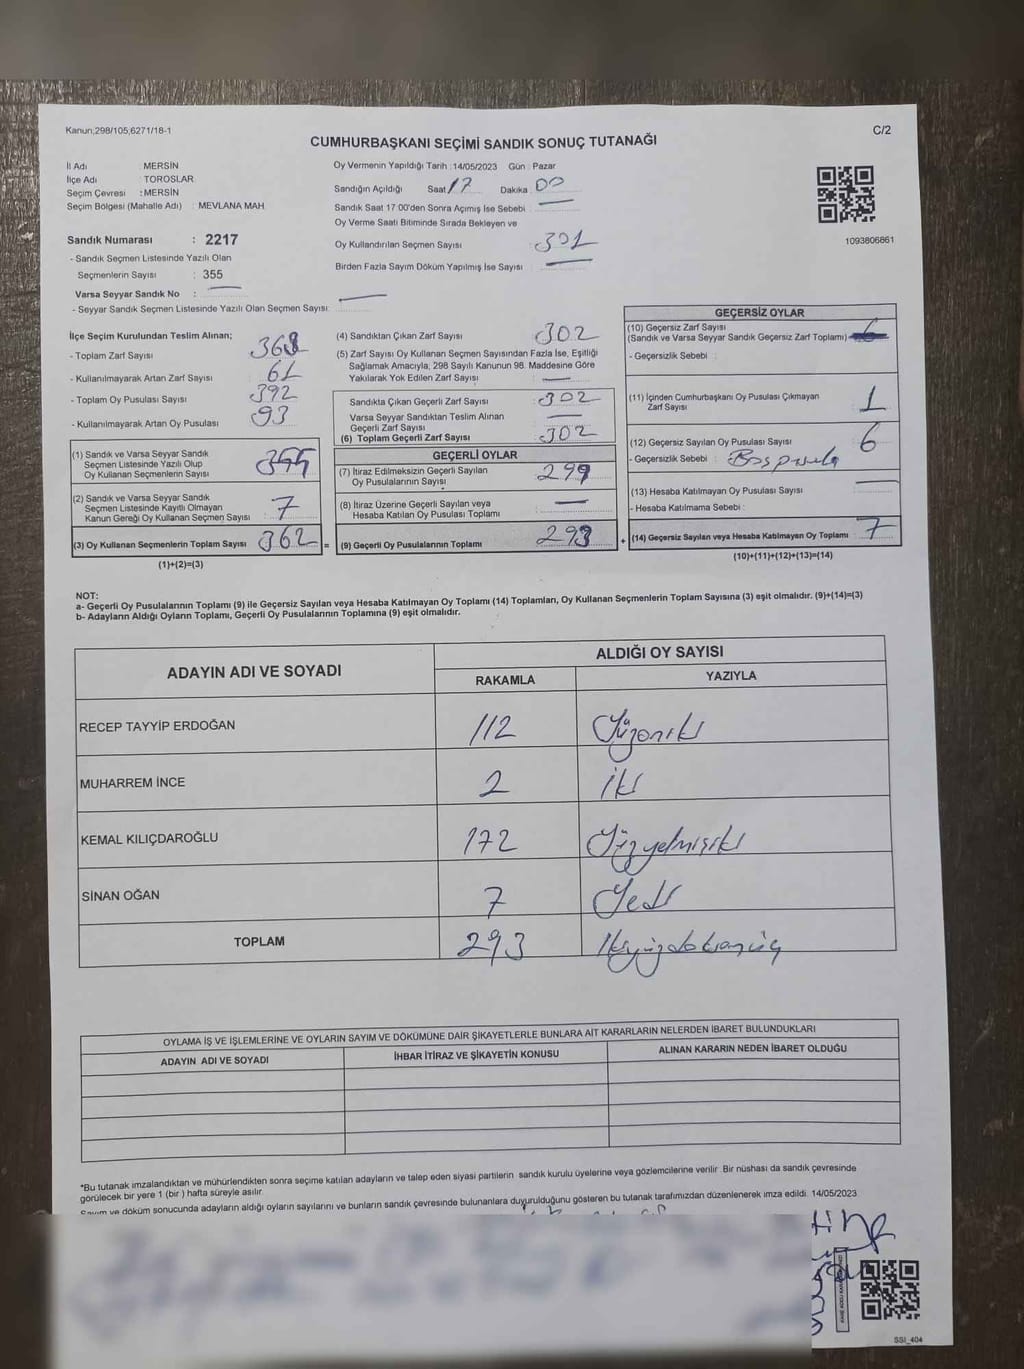 Kanun;298/105,6271/18-1
C/2
CUMHURBAŞKANI SEÇİMİ SANDIK SONUÇ TUTANAĞI
İl Adı : MERSİN
İlçe Adı : TOROSLAR
Seçim Çevresi : MERSİN
Seçim Bölgesi (Mahalle Adı) : MEVLANA MAH.
Sandık Numarası : 2217
- Sandık Seçmen Listesinde Yazılı Olan
Seçmenlerin Sayısı : 355
Varsa Seyyar Sandık No :
- Seyyar Sandık Seçmen Listesinde Yazılı Olan Seçmen Sayısı:
Oy Vermenin Yapıldığı Tarih : 14/05/2023 Gün : Pazar
Sandığın Açıldığı Saat 17 Dakika : 00
Sandık Saat 17:00'den Sonra Açımış İse Sebebi :
Oy Verme Saati Bitiminde Sırada Bekleyen ve
Oy Kullandırılan Seçmen Sayısı : 301
Birden Fazla Sayım Döküm Yapılmış İse Sayısı :
1093806861
İlçe Seçim Kurulundan Teslim Alınan;
- Toplam Zarf Sayısı
- Kullanılmayarak Artan Zarf Sayısı 61
- Toplam Oy Pusulası Sayısı 392
- Kullanılmayarak Artan Oy Pusulası 93
(1) Sandık ve Varsa Seyyar Sandık
Seçmen Listesinde Yazılı Olup
Oy Kullanan Seçmenlerin Sayısı
(2) Sandık ve Varsa Seyyar Sandık
Seçmen Listesinde Kayıtlı Olmayan
Kanun Gereği Oy Kullanan Seçmen Sayısı : 7
(3) Oy Kullanan Seçmenlerin Toplam Sayısı 362 =
(1)+(2)=(3)
(4) Sandıktan Çıkan Zarf Sayısı 302
(5) Zarf Sayısı Oy Kullanan Seçmen Sayısından Fazla İse, Eşitliği
Sağlamak Amacıyla; 298 Sayılı Kanunun 98. Maddesine Göre
Yakılarak Yok Edilen Zarf Sayısı
Sandıkta Çıkan Geçerli Zarf Sayısı : 302
Varsa Seyyar Sandıktan Teslim Alınan
Geçerli Zarf Sayısı
(6) Toplam Geçerli Zarf Sayısı : 302
GEÇERLİ OYLAR
(7) İtiraz Edilmeksizin Geçerli Sayılan
Oy Pusulalarının Sayısı
(8) İtiraz Üzerine Geçerli Sayılan veya
Hesaba Katılan Oy Pusulası Toplamı
(9) Geçerli Oy Pusulalarının Toplamı 293 +
GEÇERSİZ OYLAR
(10) Geçersiz Zarf Sayısı
(Sandık ve Varsa Seyyar Sandık Geçersiz Zarf Toplamı)
- Geçersizlik Sebebi :
(11) İçinden Cumhurbaşkanı Oy Pusulası Çıkmayan
Zarf Sayısı 1
(12) Geçersiz Sayılan Oy Pusulası Sayısı 6
- Geçersizlik Sebebi :
(13) Hesaba Katılmayan Oy Pusulası Sayısı
- Hesaba Katılmama Sebebi :
(14) Geçersiz Sayılan veya Hesaba Katılmayan Oy Toplamı 7
(10)+(11)+(12)+(13)=(14)
NOT:
a- Geçerli Oy Pusulalarının Toplamı (9) ile Geçersiz Sayılan veya Hesaba Katılmayan Oy Toplamı (14) Toplamları, Oy Kullanan Seçmenlerin Toplam Sayısına (3) eşit olmalıdır. (9)+(14)=(3)
b- Adayların Aldığı Oyların Toplamı, Geçerli Oy Pusulalarının Toplamına (9) eşit olmalıdır.
ADAYIN ADI VE SOYADI
ALDIĞI OY SAYISI
RAKAMLA YAZIYLA
RECEP TAYYİP ERDOĞAN 112 Yüzoniki
MUHARREM İNCE 2 iki
KEMAL KILIÇDAROĞLU 172 Yüzyetmişiki
SİNAN OĞAN 7 Yedi
TOPLAM 293
OYLAMA İŞ VE İŞLEMLERİNE VE OYLARIN SAYIM VE DÖKÜMÜNE DAİR ŞİKAYETLERLE BUNLARA AİT KARARLARIN NELERDEN İBARET BULUNDUKLARI
ADAYIN ADI VE SOYADI İHBAR İTİRAZ VE ŞİKAYETİN KONUSU ALINAN KARARIN NEDEN İBARET OLDUĞU
*Bu tutanak imzalandıktan ve mühürlendikten sonra seçime katılan adayların ve talep eden siyasi partilerin sandık kurulu üyelerine veya gözlemcilerine verilir. Bir nüshası da sandık çevresinde
görülecek bir yere 1 (bir) hafta süreyle asılır.
Sayım ve döküm sonucunda adayların aldığı oyların sayılarını ve bunların sandık çevresinde bulunanlara duyurulduğunu gösteren bu tutanak tarafımızdan düzenlenerek imza edildi. 14/05/2023
SSI_404